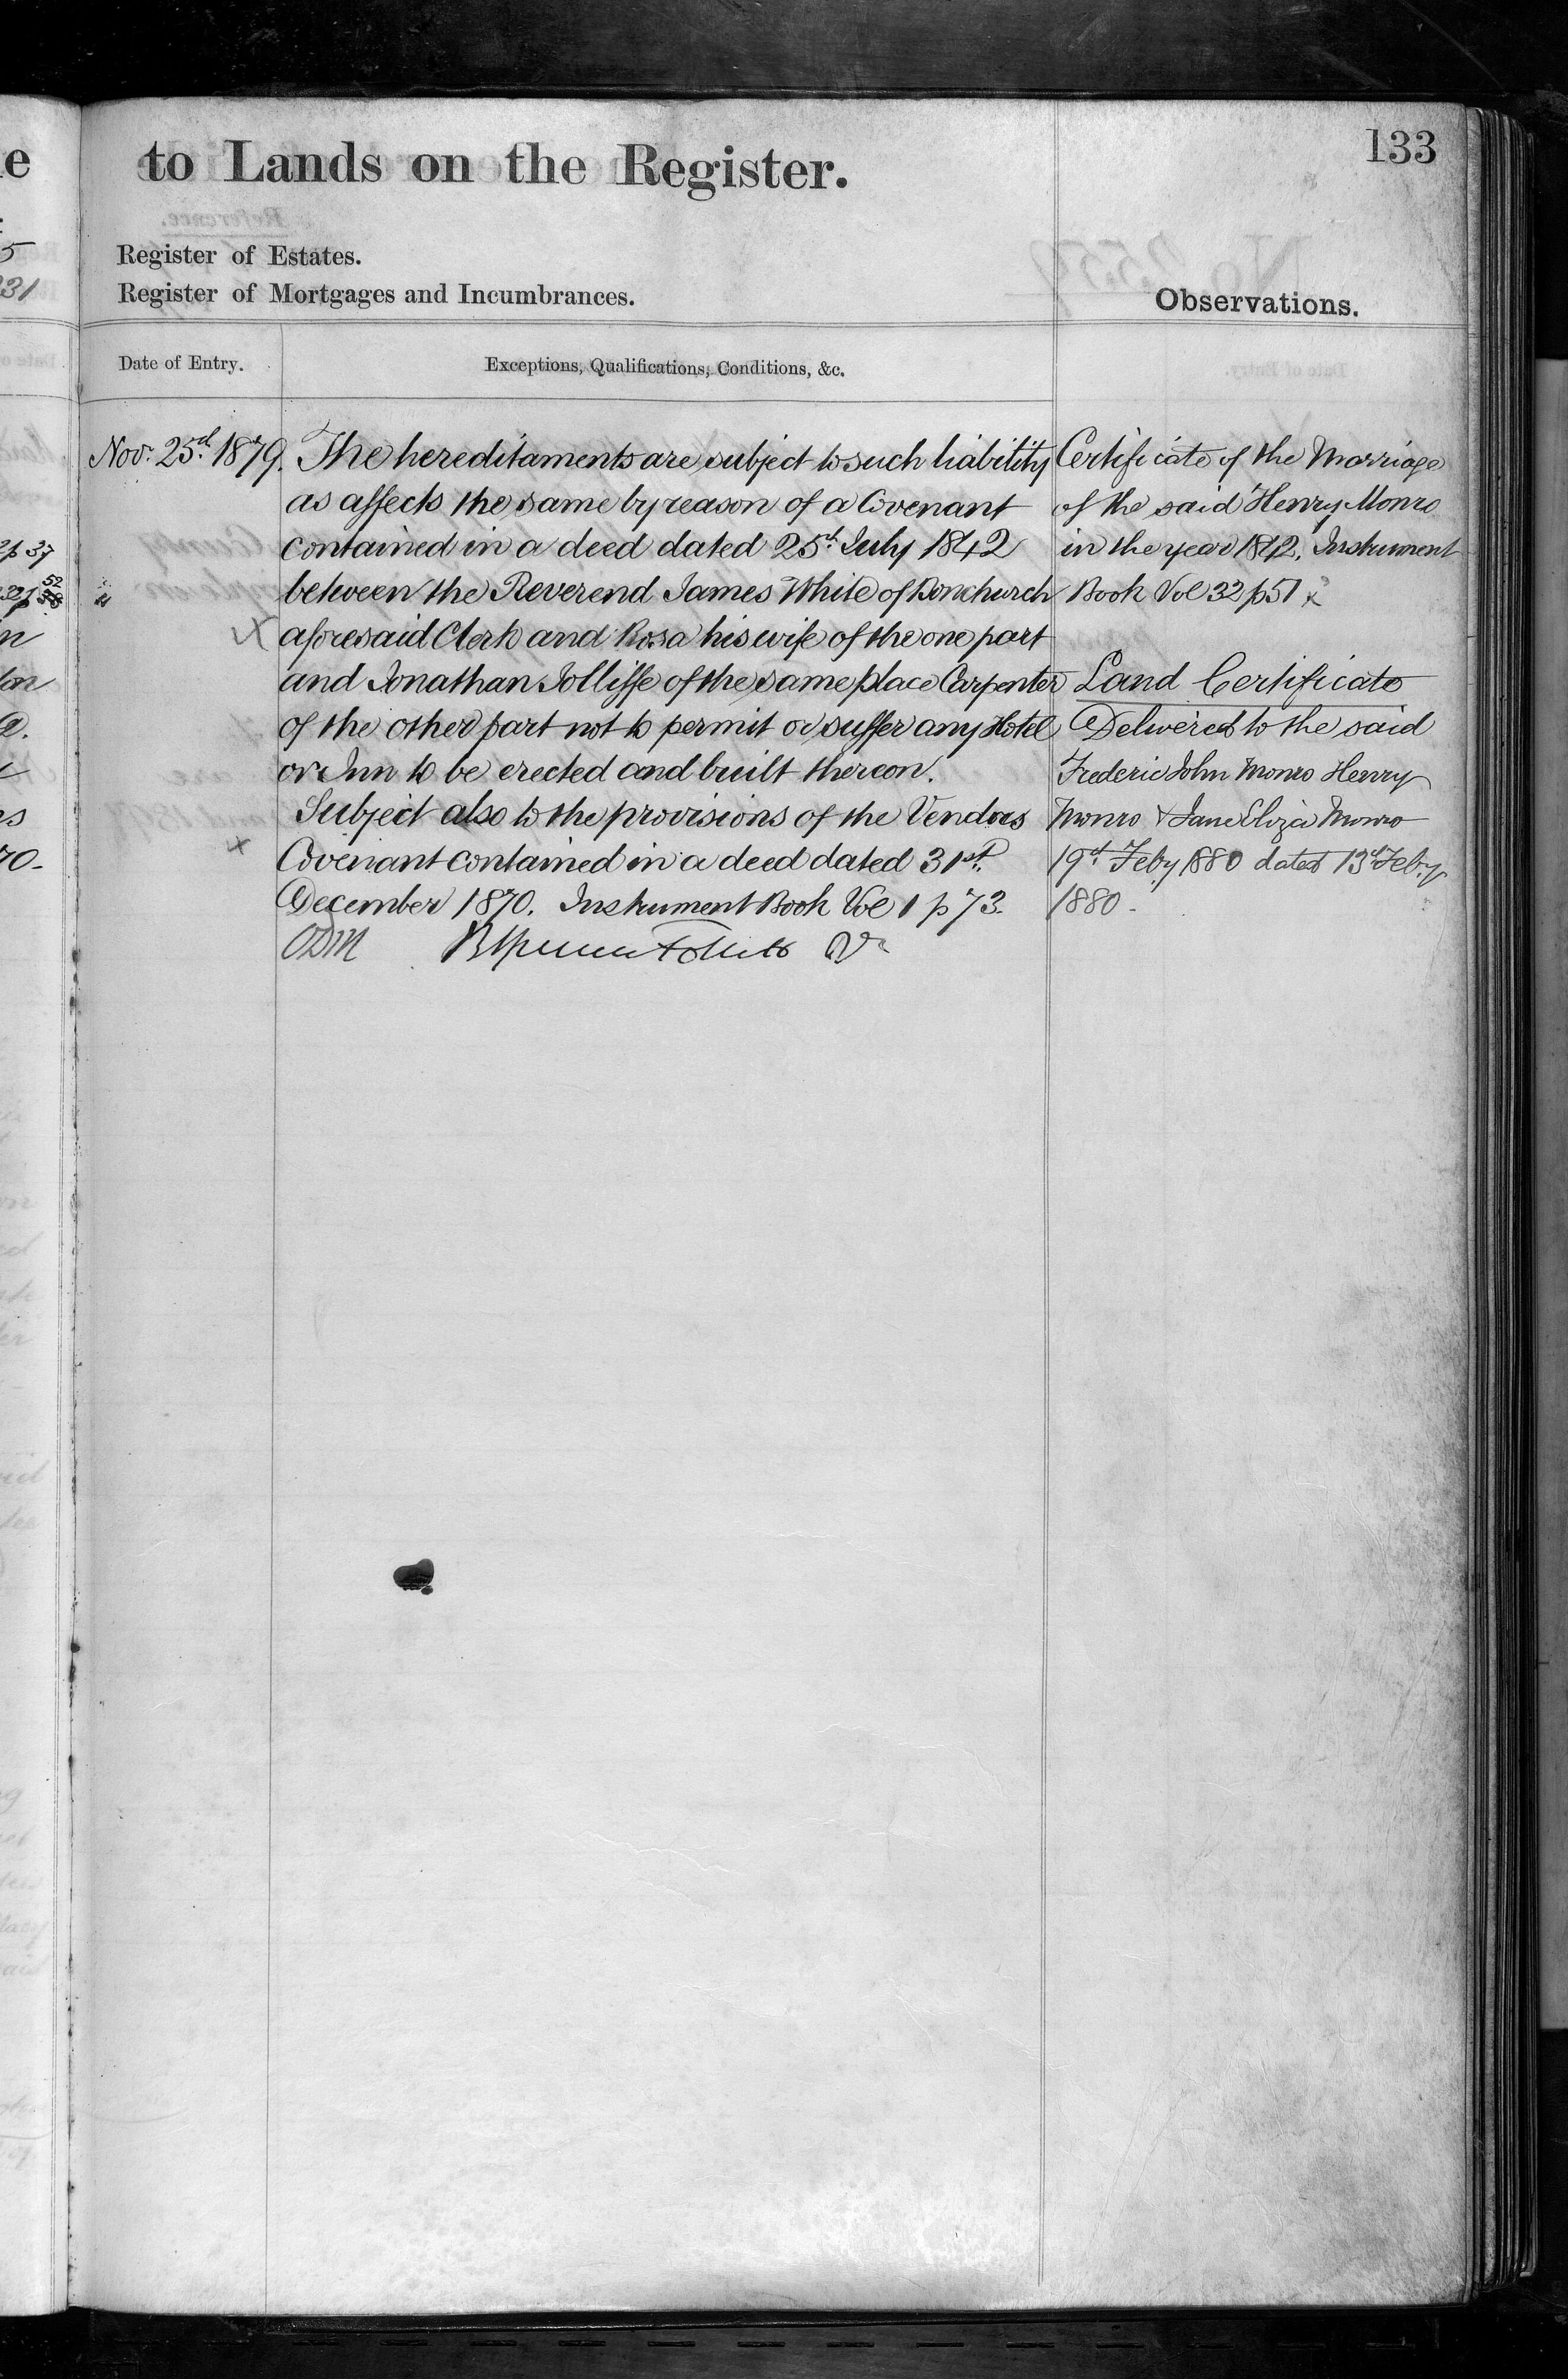 133
to Lands on the Register.
Register of Estates.
Register of Mortgages and Incumbrances.
Observations.
Date of Entry.
Exceptions, Qualifications, Conditions, &c.
Nov. 25th 1879. The hereditaments are subject to such liability
as affects the same by reason of a Covenant
contained in a deed dated 25th July 1842
between the Reverend James White of Bonchurch
aforesaid Clerk and Rosa his wife of the one part
and Jonathan Jolliffe of the same place Carpenter
of the other part not to permit or suffer any Hotel
or Inn to be erected and built thereon.
Subject also to the provisions of the Vendors
Covenant contained in a deed dated 31st
December 1870. Instrument Book Vol 1 p 73.
Certificate of the Marriage
of the said Henry Monro
in the year 1842. Instrument
Book Vol 32 p 51 x
Land Certificate
Delivered to the said
Frederic John Monro Henry
Monro & Jane Eliza Monro
19th Feby 1880 dated 13th Feby
1880.